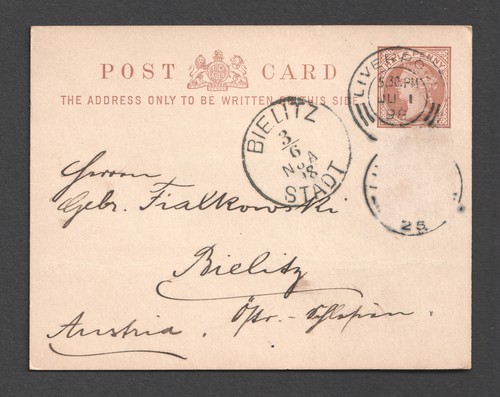 POST CARD
THE ADDRESS ONLY TO BE WRITTEN ON THIS SIDE
LIVERPOOL
5.30.PM
JU 1
98
BIELITZ
3/6
98
STADT
25
Herren
Gebr. Fialkowski
Bielitz
Austria. Östr.-Schlesien.